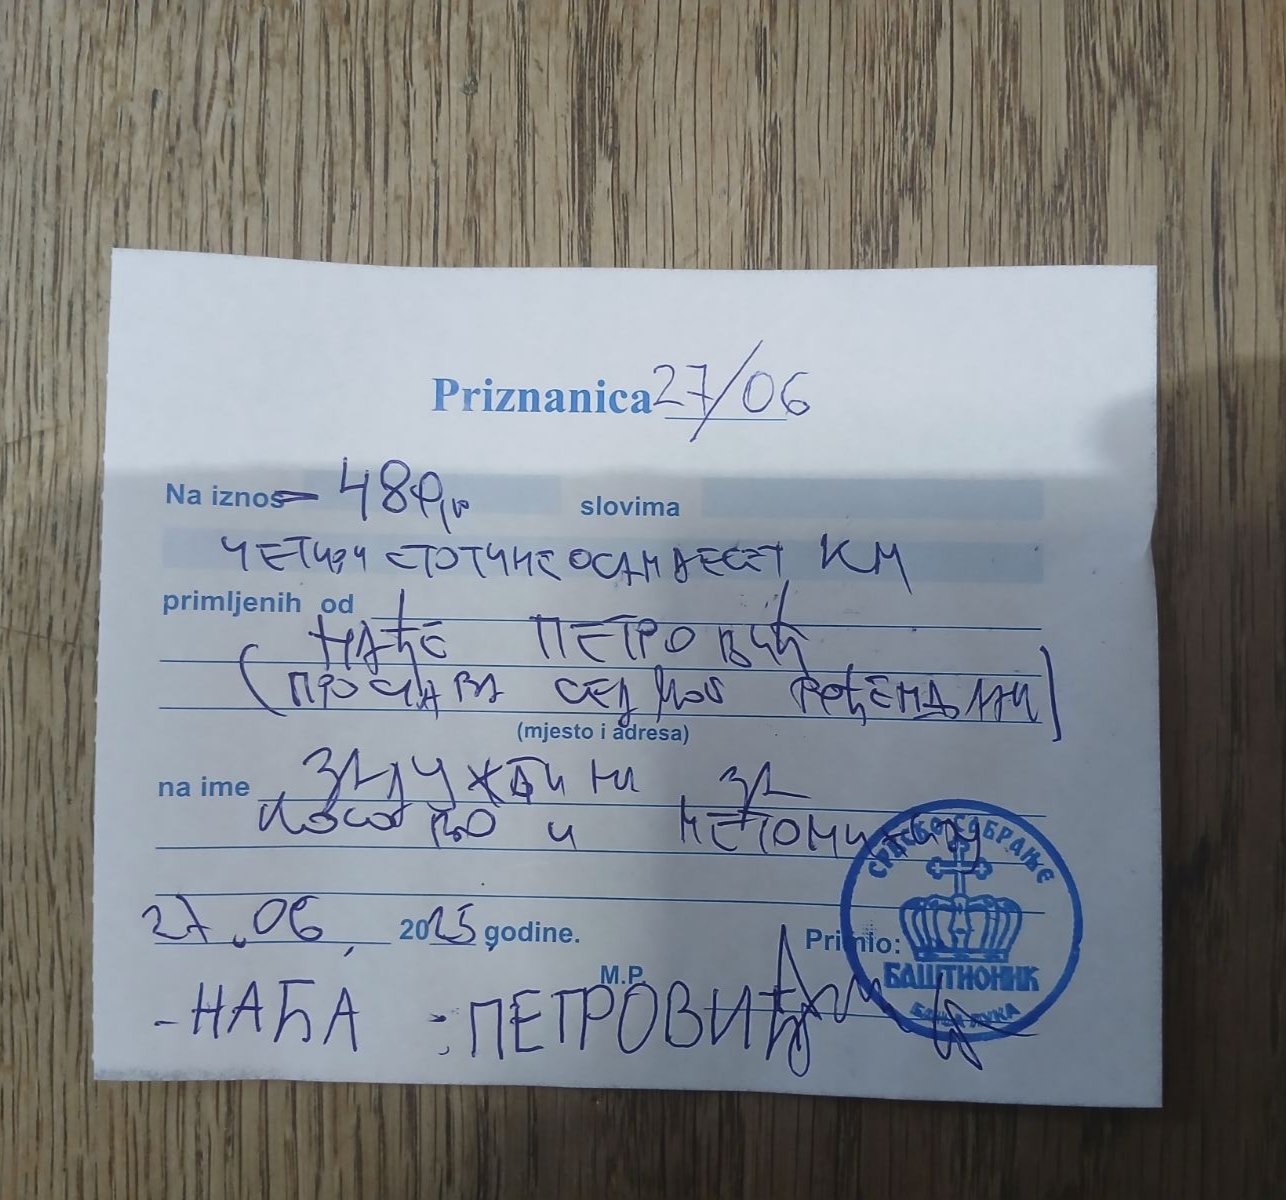 Priznanica 27/06
Na iznos - 480,00 slovima
ЧЕТИРИ СТОТИНЕ ОСАМДЕСЕТ КМ
primljenih od
НАЂЕ ПЕТРОВИЋ
(ПРОСЛАВА СЕДМОГ РОЂЕНДАНА)
(mjesto i adresa)
na ime ЗАДУЖБИНИ ЗА
КОСОВО И МЕТОХИЈУ
27.06. 2025 godine. Primio:
М.P.
- НАЂА : ПЕТРОВИЋ
СРПСКО САБРАЊЕ
БАШТИОНИК
БАЊА ЛУКА